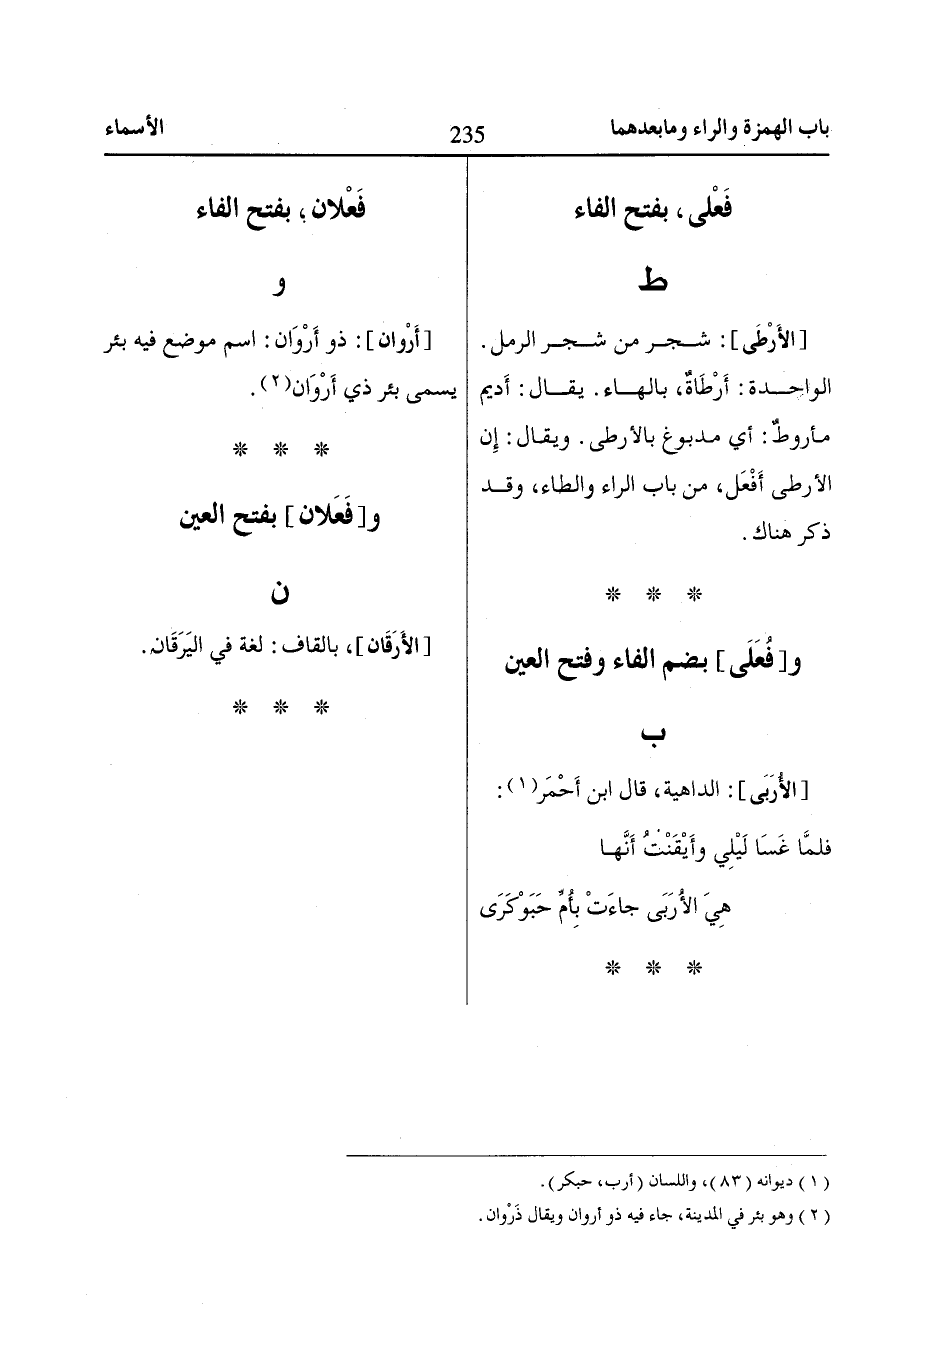 باب الهمزة والراء ومابعدهما
235
الأسماء
فَعْلى، بفتح الفاء
ط
[الأَرْطَى]: شجر من شجر الرمل.
الواحدة: أَرْطَاةٌ، بالهاء. يقال: أديم
مأروطٌ: أي مدبوغ بالأرطى. ويقال: إن
الأرطى أَفْعَل، من باب الراء والطاء، وقد
ذكر هناك.
* * *
و[فُعَلَى] بضم الفاء وفتح العين
ب
[الأُرَبَى]: الداهية، قال ابن أَحْمَر(١):
فلمَّا غَسَا لَيْلِي وأَيْقَنْتُ أنَّهـا
هِيَ الأُرَبَى جاءَتْ بأُمِّ حَبَوْكَرَى
* * *
فَعْلان، بفتح الفاء
و
[أَرْوان]: ذو أَرْوَان: اسم موضع فيه بئر
يسمى بئر ذي أَرْوَان(٢).
* * *
و[فَعَلان] بفتح العين
ن
[الأَرَقَان]، بالقاف: لغة في اليَرَقَان.
* * *
(١) ديوانه (٨٣)، واللسان (أرب، حبكر).
(٢) وهو بئر في المدينة، جاء فيه ذو أروان ويقال ذَرْوان.